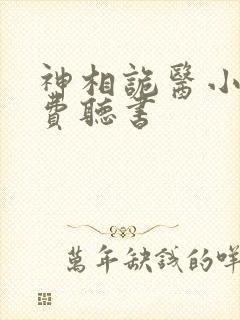 神相詭醫小
費聽書
萬年缺錢的咩